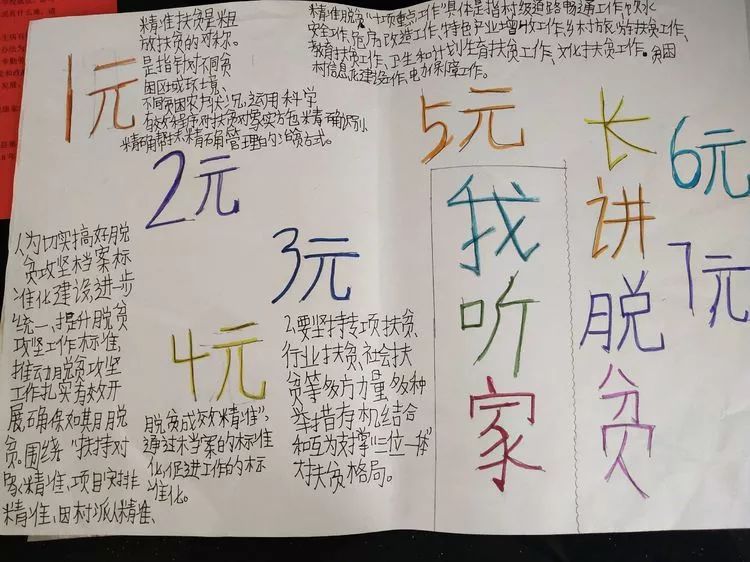 1元
精准扶贫是粗
放扶贫的对称。
是指针对不同贫
困区域环境、
不同贫困农户状况,运用科学
有效程序对扶贫对象实方包精确识别
精确帮夫精确管理的治贫方式。
精准脱贫“十项重点工作”具体是指村级道路畅通工作、饮水
安全工作、危房改造工作、特色产业增收工作、乡村旅游扶贫工作、
教育扶贫工作、卫生和计划生育扶贫工作、文化扶贫工作、贫困
村信息化建设工作、电力保障工作。
2元
3元
4元
5元
6元
7元
我听家
长讲脱贫
人为切实搞好脱
贫攻坚档案标
准化建设,进步
统一、提升脱贫
攻坚工作标准,
推动脱贫攻坚
工作扎实有效开
展,确保如其月脱
贫。围绕“扶持对
象精准、项目安排
精准、因村派人精准、
脱贫成效精准”,
通过档案的标准
化,促进工作的标
准化。
2.要坚持专项扶贫、
行业扶贫、社会扶
贫等多方力量、多种
举措有机结合
和互为支撑“三位一体”
大扶贫格局。